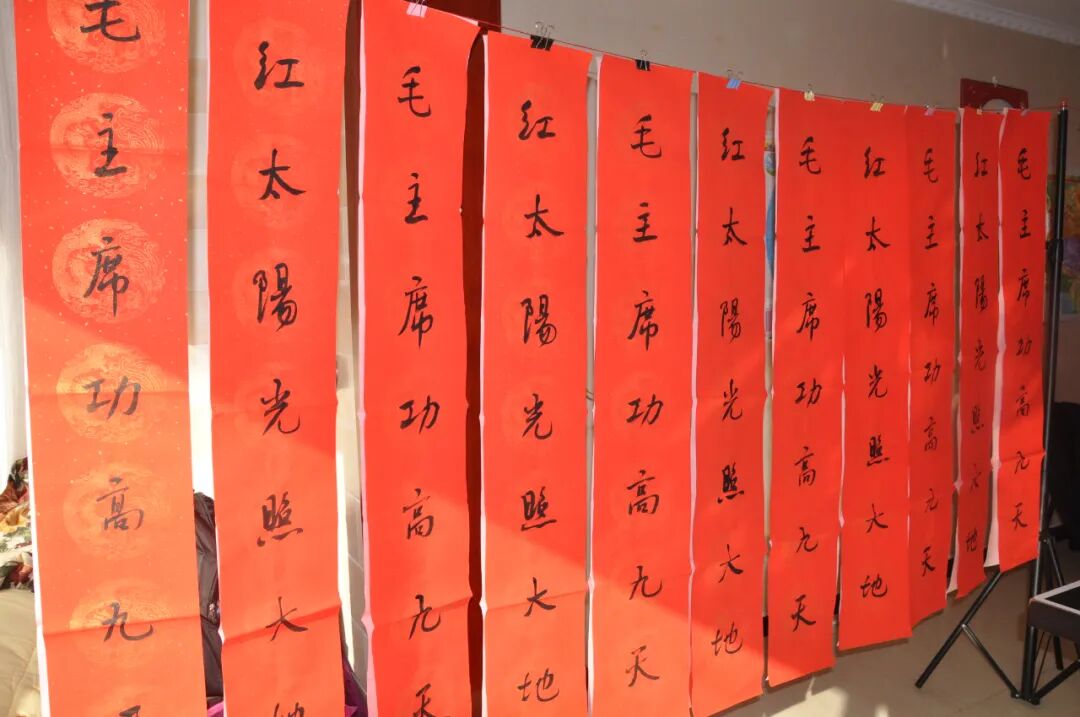 毛主席功高九
红太陽光照大地
毛主席功高九天
红太陽光照大地
毛主席功高九天
红太陽光照大地
毛主席功高九天
红太陽光照大地
毛主席功高九天
红太陽光照大地
毛主席功高九天